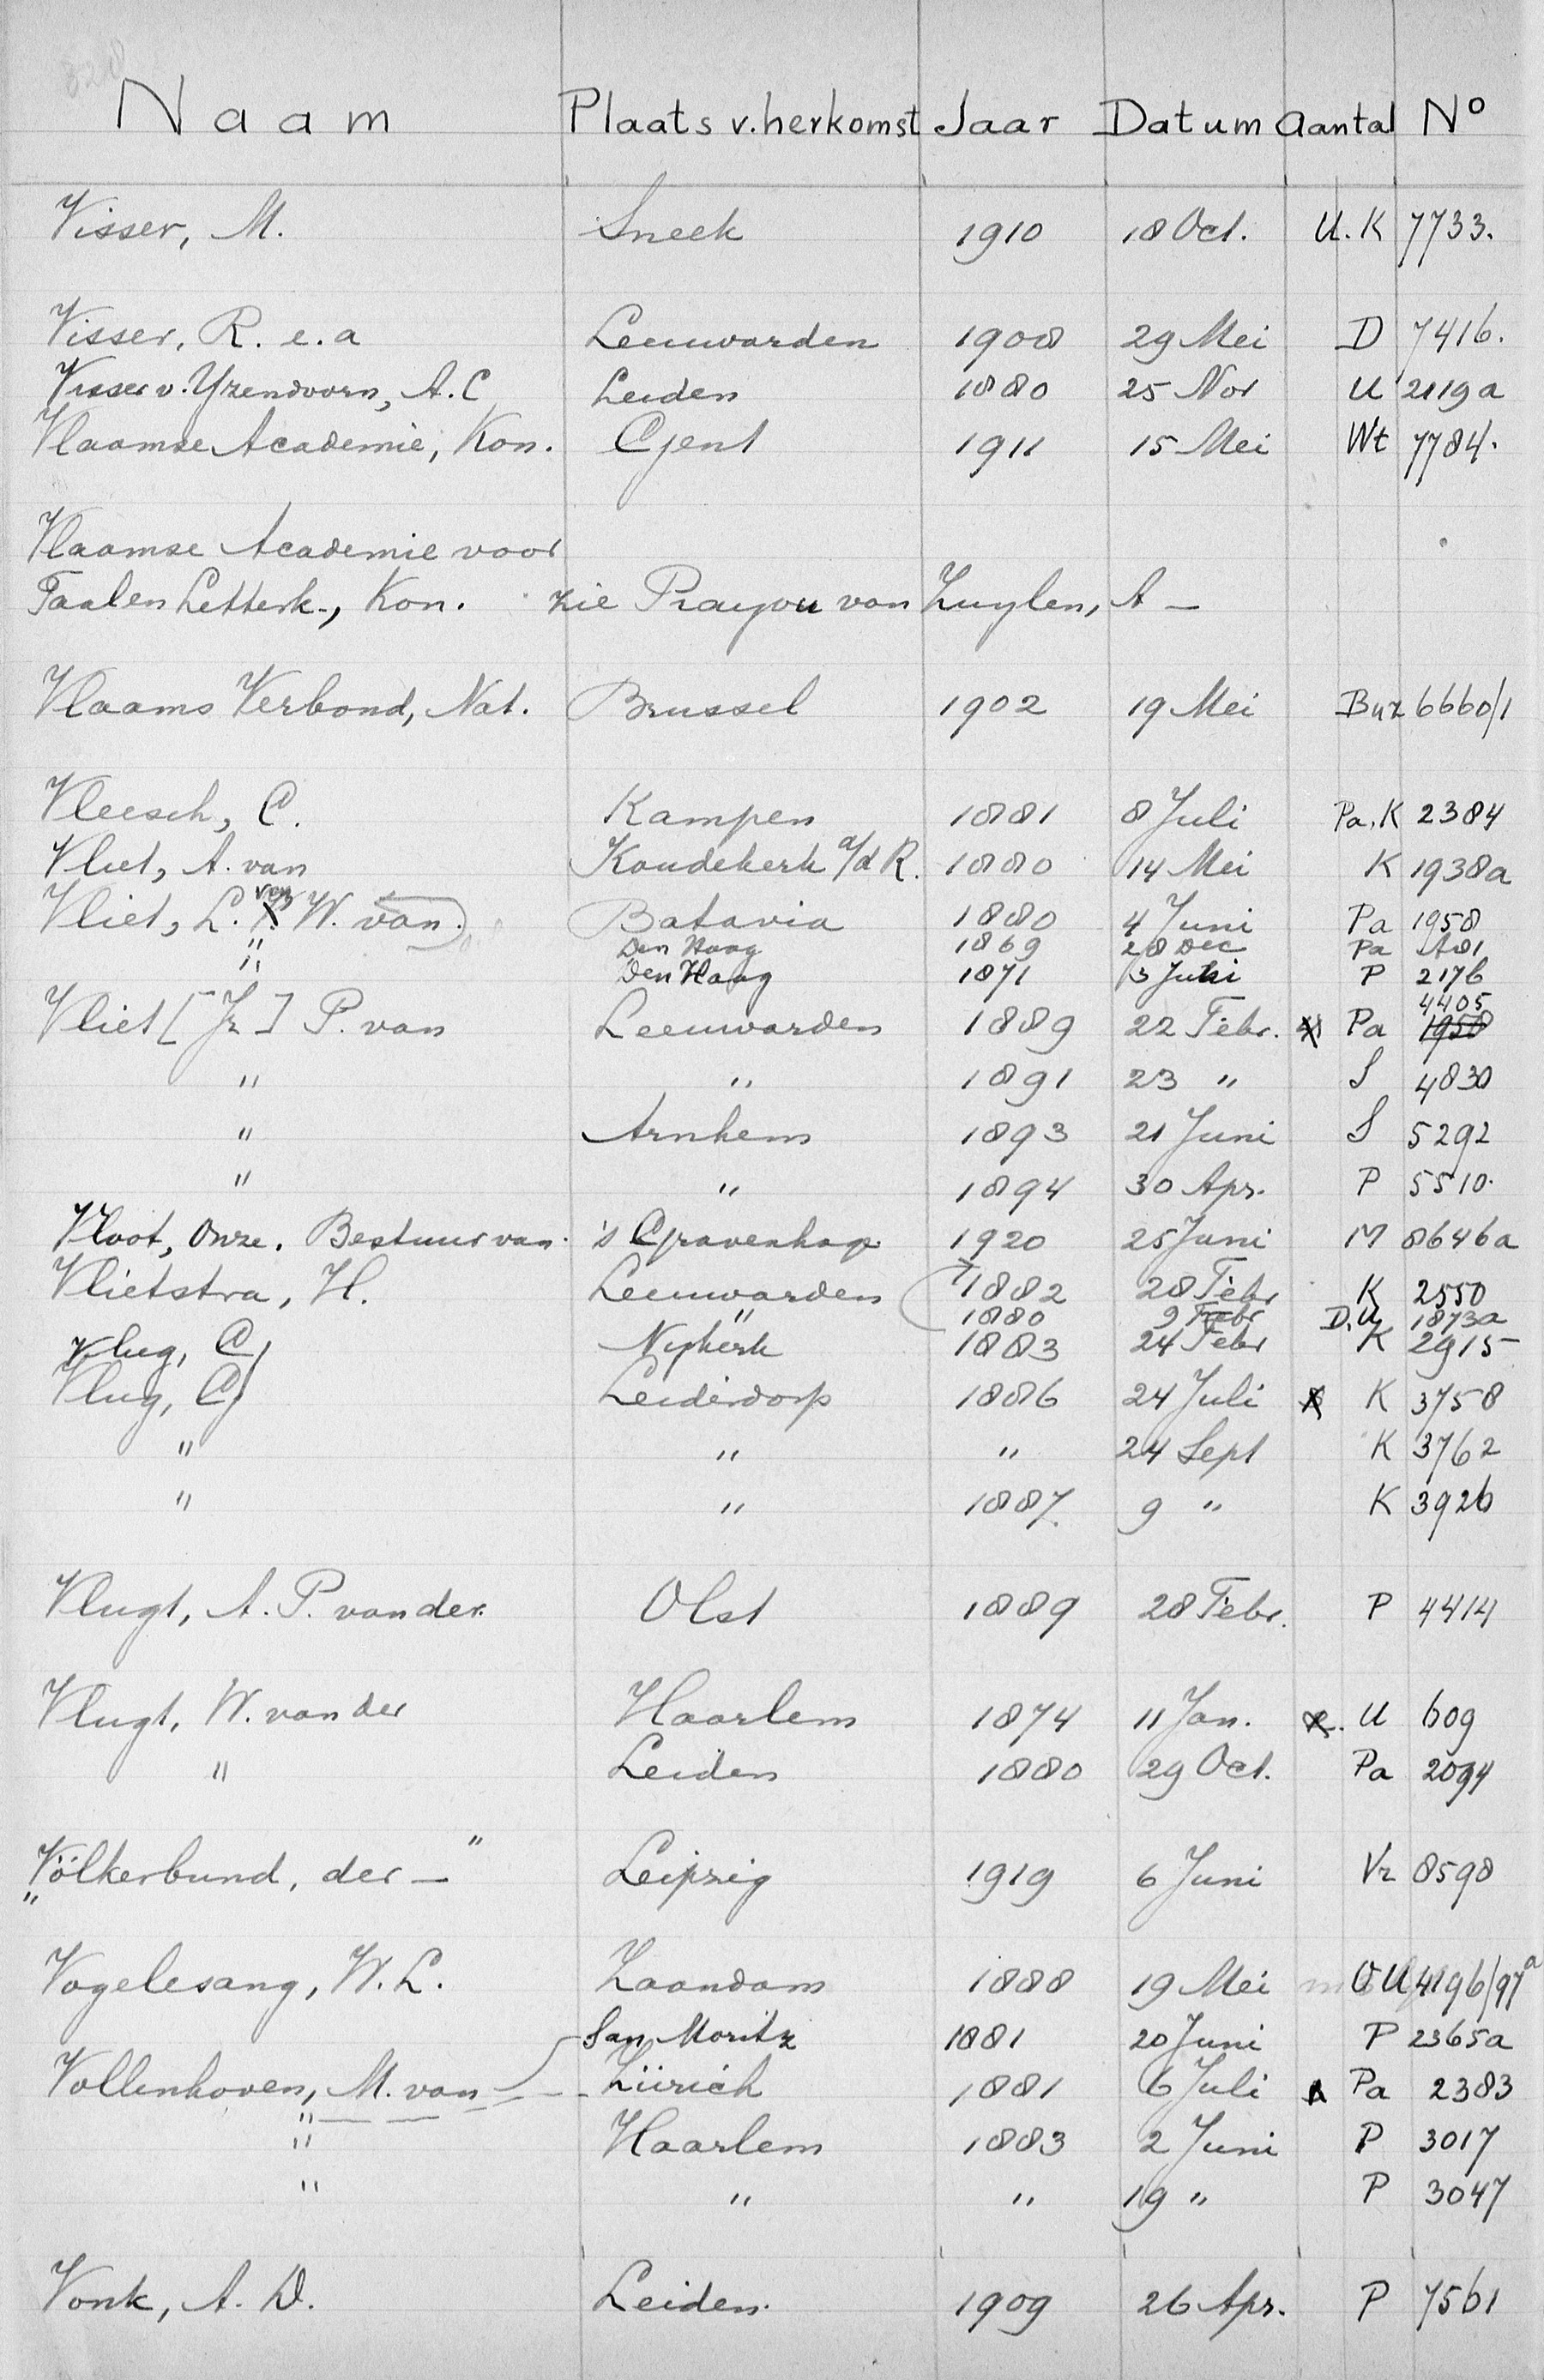 Naam Plaats v. herkomst Jaar Datum Aantal Nº
Visser, M. Sneek 1910 18 Oct. U. K 7733.
Visser, R. e.a Leeuwarden 1908 29 Mei D 7416.
Visser v. Yzendoorn, A. C Leiden 1880 25 Nov U 2119a
Vlaamse Academie, Kon. Gent 1911 15 Mei Wt 7784.
Vlaamse Academie voor
Taal en Letterk., Kon. zie Prayou van Zuylen, A -
Vlaams Verbond, Nat. Brussel 1902 19 Mei Buz 6660/1
Vleesch, C. Kampen 1881 8 Juli Pa. K 2384
Vliet, A. van Koudekerk a/d R. 1880 14 Mei K 1938a
Vliet, L. van W. van Batavia 1880 4 Juni Pa 1958
" Den Haag 1869 28 Dec Pa A81
" Den Haag 1871 3 Juli P 217b
Vliet [Jz] P. van Leeuwarden 1889 22 Febr. Pa 4405 1958
" " 1891 23 " S 4830
" Arnhem 1893 21 Juni S 5292
" " 1894 30 Apr. P 5510.
Vloot, Onze. Bestuur van 's Gravenhage 1920 25 Juni M 8646a
Vlietstra, H. Leeuwarden 1882 28 Febr K 2550
" 1880 9 Febr D. U 1873a
Vlug, C. Nijkerk 1883 24 Febr K 2915
Vlug, C. Leiderdorp 1886 24 Juli K 3758
" " " 24 Sept K 3762
" " 1887 9 " K 3926
Vlugt, A. P. van der Olst 1889 28 Febr. P 4414
Vlugt, W. van der Haarlem 1874 11 Jan. U 609
" Leiden 1880 29 Oct. Pa 2094
"Völkerbund, der -" Leipzig 1919 6 Juni Vr 8598
Vogelesang, W. L. Zaandam 1888 19 Mei OU 4196/97a
San Moritz 1881 20 Juni P 2365a
Vollenhoven, M. van Zürich 1881 6 Juli Pa 2383
" Haarlem 1883 2 Juni P 3017
" " " 19 " P 3047
Vonk, A. D. Leiden 1909 26 Apr. P 7561